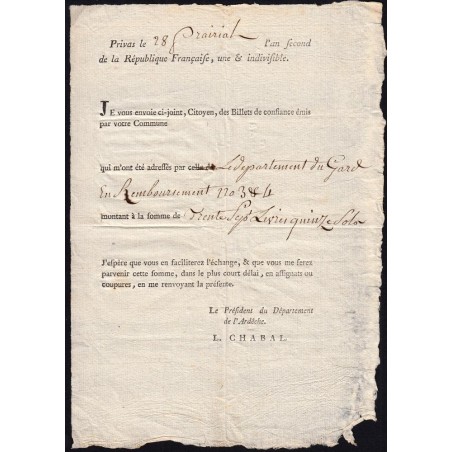 Privas le 28 Prairial l'an second
de la République Française, une & indivisible.
JE vous envoie ci-joint, Citoyen, des Billets de confiance émis
par votre Commune
qui m'ont été adressés par celle de Le departement du Gard
En Remboursement no 3 & 4
montant à la somme de trente Sept Livres quinze Sols
J'espère que vous en faciliterez l'échange, & que vous me ferez
parvenir cette somme, dans le plus court délai, en assignats ou
coupures, en me renvoyant la présente.
Le Président du Département
de l'Ardèche.
L. CHABAL.